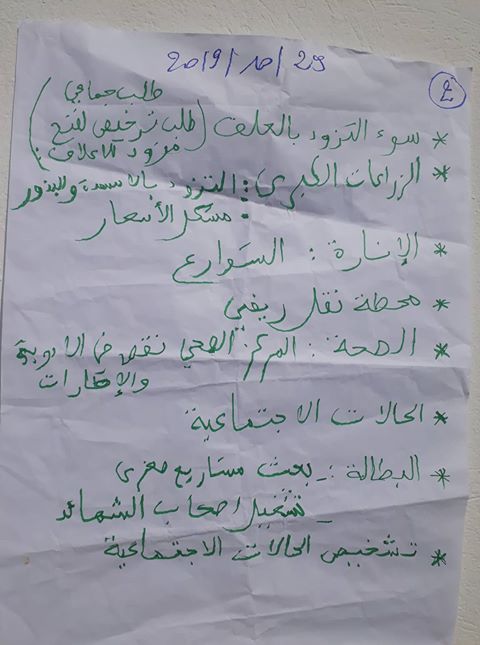 29 / 10 / 2019
2
طلب جماعي
* سوء التزود بالعلف (طلب ترخيص لفتح
مزود للأعلاف)
* الزراعات الكبرى: التزود بالأسمدة والبذور
: مشكل الأسعار
* الإنارة : الشوارع
* محطة نقل ريفي
* الصحة : المركز الصحي نقص في الادوية
والإطارات
* الحالات الاجتماعية
* البطالة :- بعث مشاريع صغرى
- تشغيل اصحاب الشهائد
* تشخيص الحالات الاجتماعية